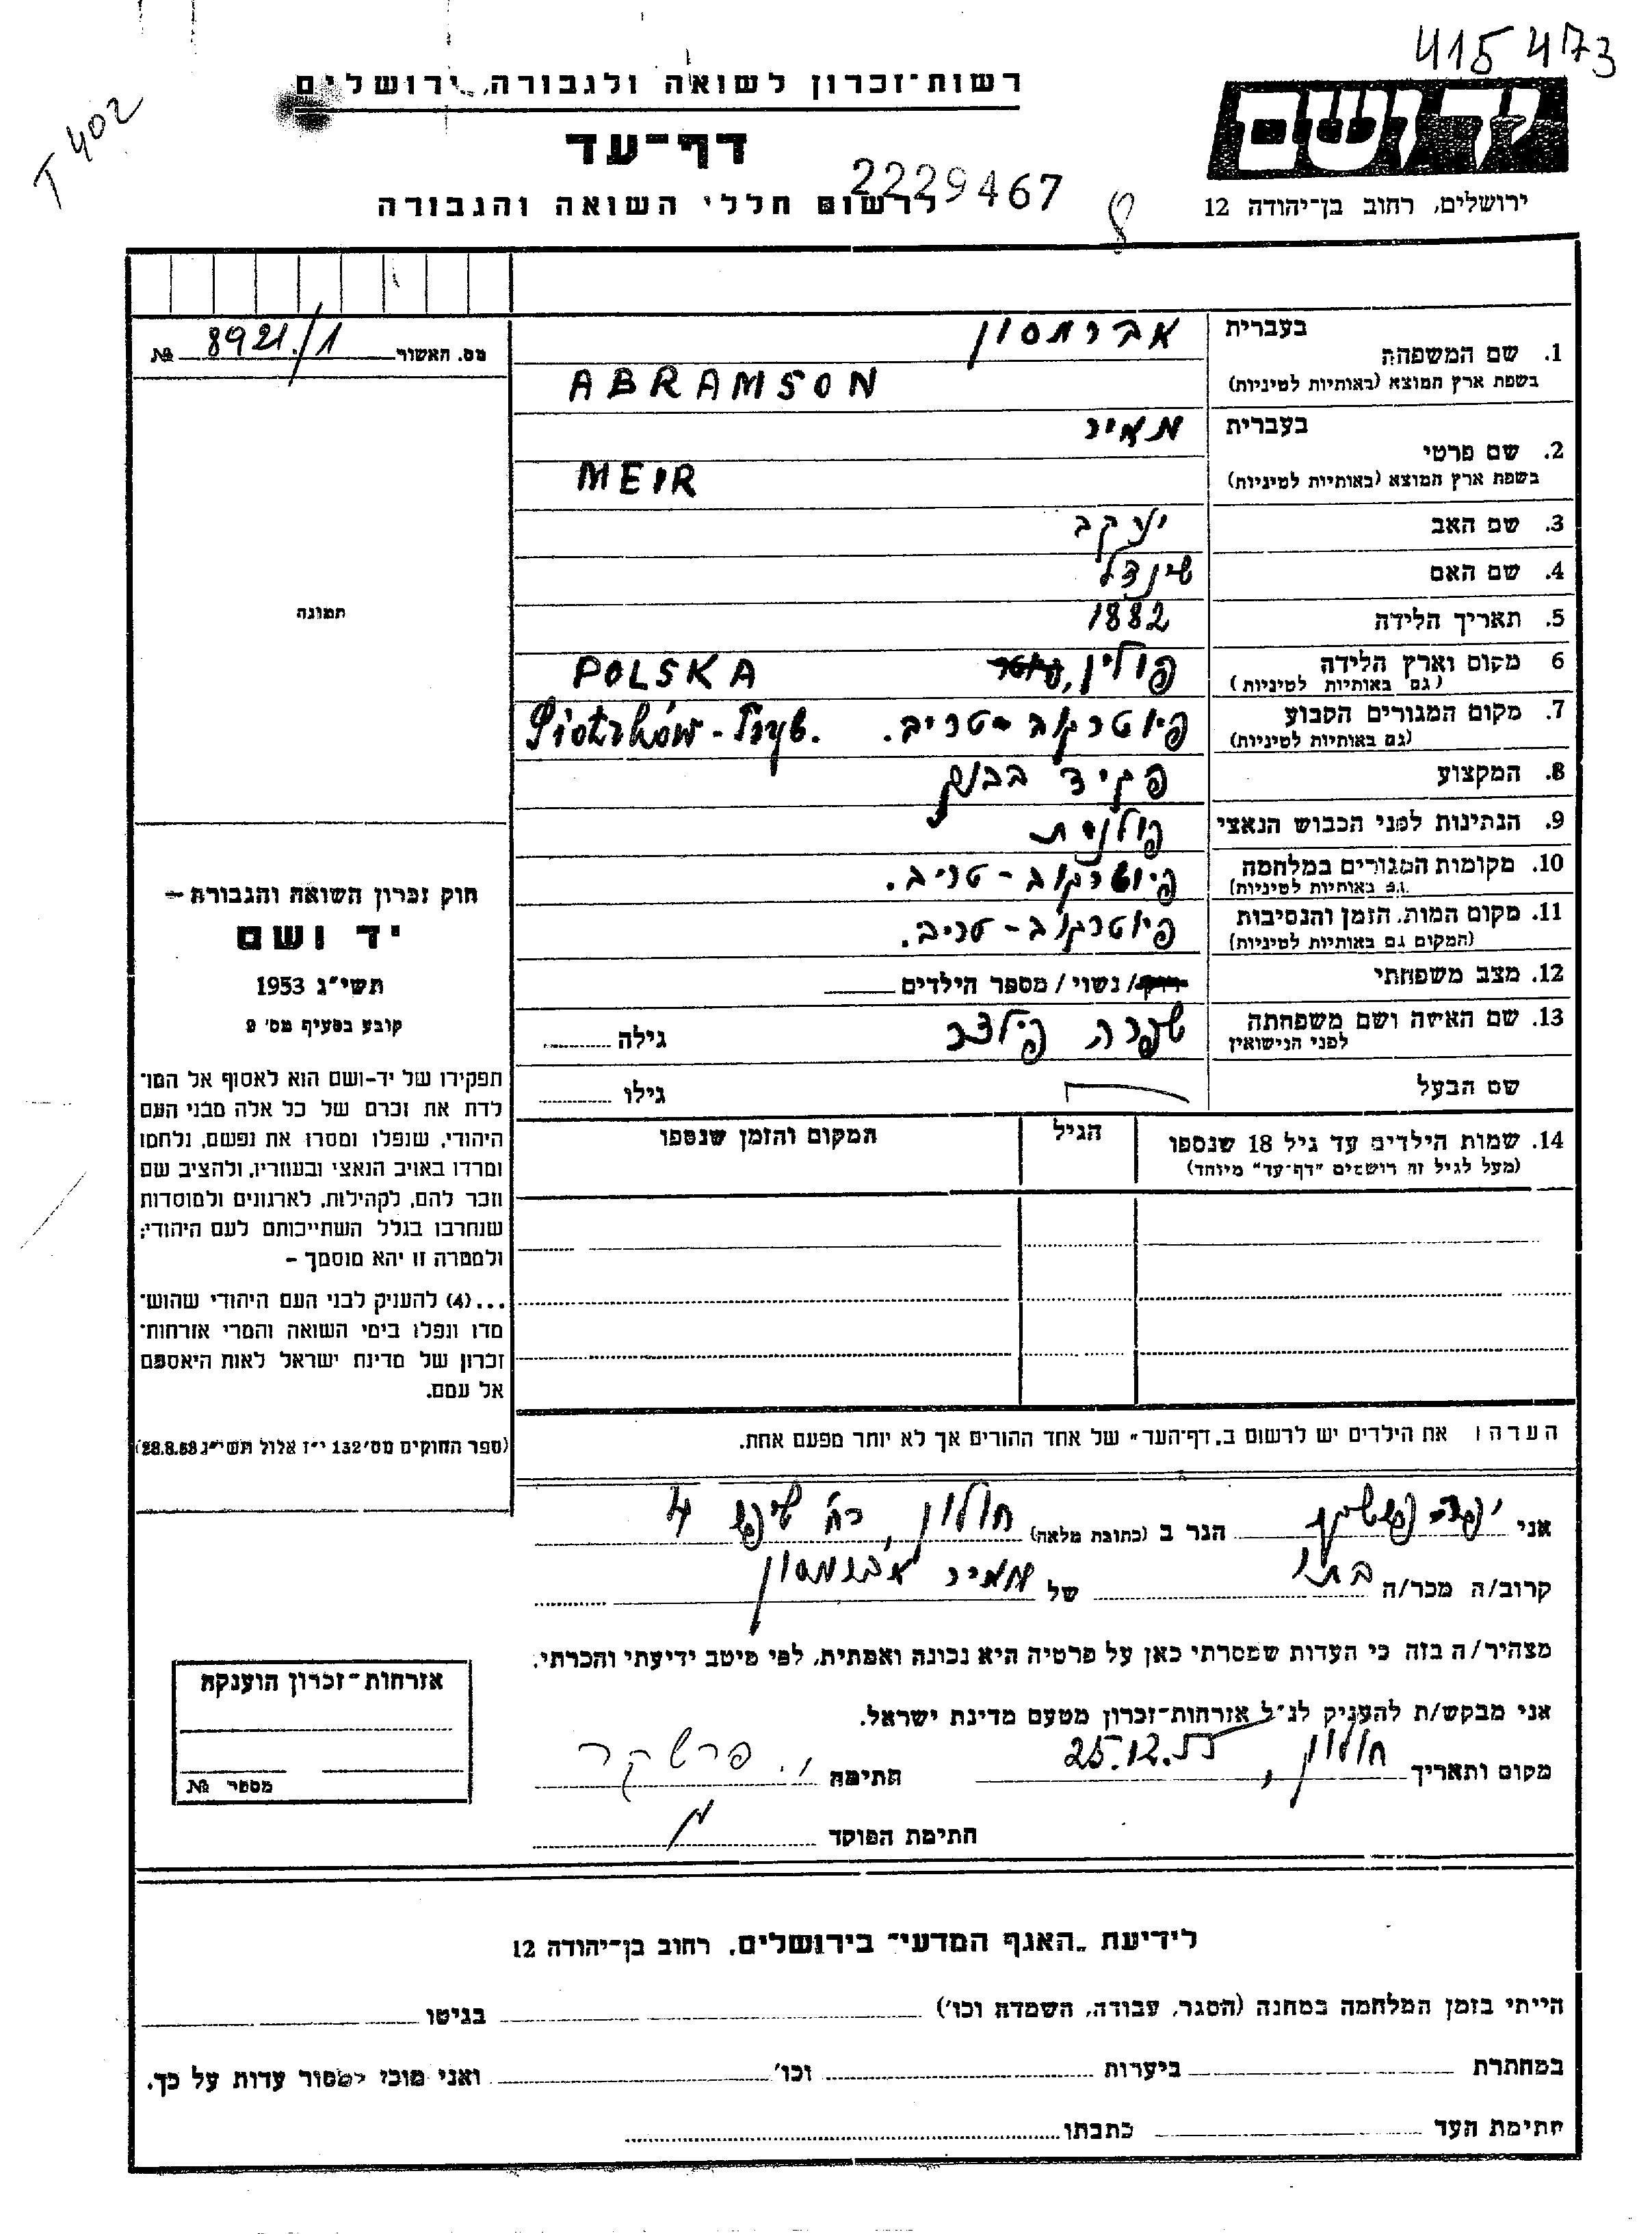 415473
T 402
רשות־זכרון לשואה ולגבורה, ירושלים
דף־עד
2229467
לרשום חללי השואה והגבורה
ידושם
ירושלים, רחוב בן־יהודה 12
מס. האשור 8921/1 №
תמונה
1. שם המשפחה בעברית אברמסון
בשפת ארץ המוצא (באותיות לטיניות) ABRAMSON
2. שם פרטי בעברית מאיר
בשפת ארץ המוצא (באותיות לטיניות) MEIR
3. שם האב יעקב
4. שם האם שינדל
5. תאריך הלידה 1882
6 מקום וארץ הלידה (גם באותיות לטיניות) פולין, POLSKA
7. מקום המגורים הקבוע (גם באותיות לטיניות) פיוטרקוב-טריב. Piotrków-Tryb.
8. המקצוע פקיד בבנק
9. הנתינות לפני הכבוש הנאצי פולנית
10. מקומות המגורים במלחמה (גם באותיות לטיניות) פיוטרקוב-טריב.
11. מקום המות, הזמן והנסיבות (המקום גם באותיות לטיניות) פיוטרקוב-טריב.
12. מצב משפחתי רווק/ נשוי / מספר הילדים
13. שם האישה ושם משפחתה לפני הנישואין שפרה פילצר גילה
שם הבעל גילו
14. שמות הילדים עד גיל 18 שנספו הגיל המקום והזמן שנספו
(מעל לגיל זה רושמים "דף־עד" מיוחד)
חוק זכרון השואה והגבורה –
יד ושם
תשי"ג 1953
קובע בסעיף מס' 9
תפקידו של יד-ושם הוא לאסוף אל המו־
לדת את זכרם של כל אלה מבני העם
היהודי, שנפלו ומסרו את נפשם, נלחמו
ומרדו באויב הנאצי ובעוזריו, ולהציב שם
וזכר להם, לקהילות, לארגונים ולמוסדות
שנחרבו בגלל השתייכותם לעם היהודי;
ולמטרה זו יהא מוסמך –
...(4) להעניק לבני העם היהודי שהוש־
מדו ונפלו בימי השואה והמרי אזרחות־
זכרון של מדינת ישראל לאות היאספם
אל עמם.
(ספר החוקים מס' 132 י"ז אלול תשי"ג 28.8.53)
הערה: את הילדים יש לרשום ב"דף־העד" של אחד ההורים אך לא יותר מפעם אחת.
אני הגר ב (כתובת מלאה) חולון, רח' 4
קרוב/ה מכר/ה בתו של מאיר אברמסון
מצהיר/ה בזה כי העדות שמסרתי כאן על פרטיה היא נכונה ואמתית, לפי מיטב ידיעתי והכרתי.
אני מבקש/ת להעניק לנ"ל אזרחות־זכרון מטעם מדינת ישראל.
מקום ותאריך חולון, 25.12.55 חתימה י. פרשקר
חתימת הפוקד
אזרחות־זכרון הוענקה
מספר №
לידיעת "האגף המדעי" בירושלים, רחוב בן־יהודה 12
הייתי בזמן המלחמה במחנה (הסגר, עבודה, השמדה וכו') בגיטו
במחתרת ביערות וכו' ואני מוכן למסור עדות על כך.
חתימת העד כתבתו